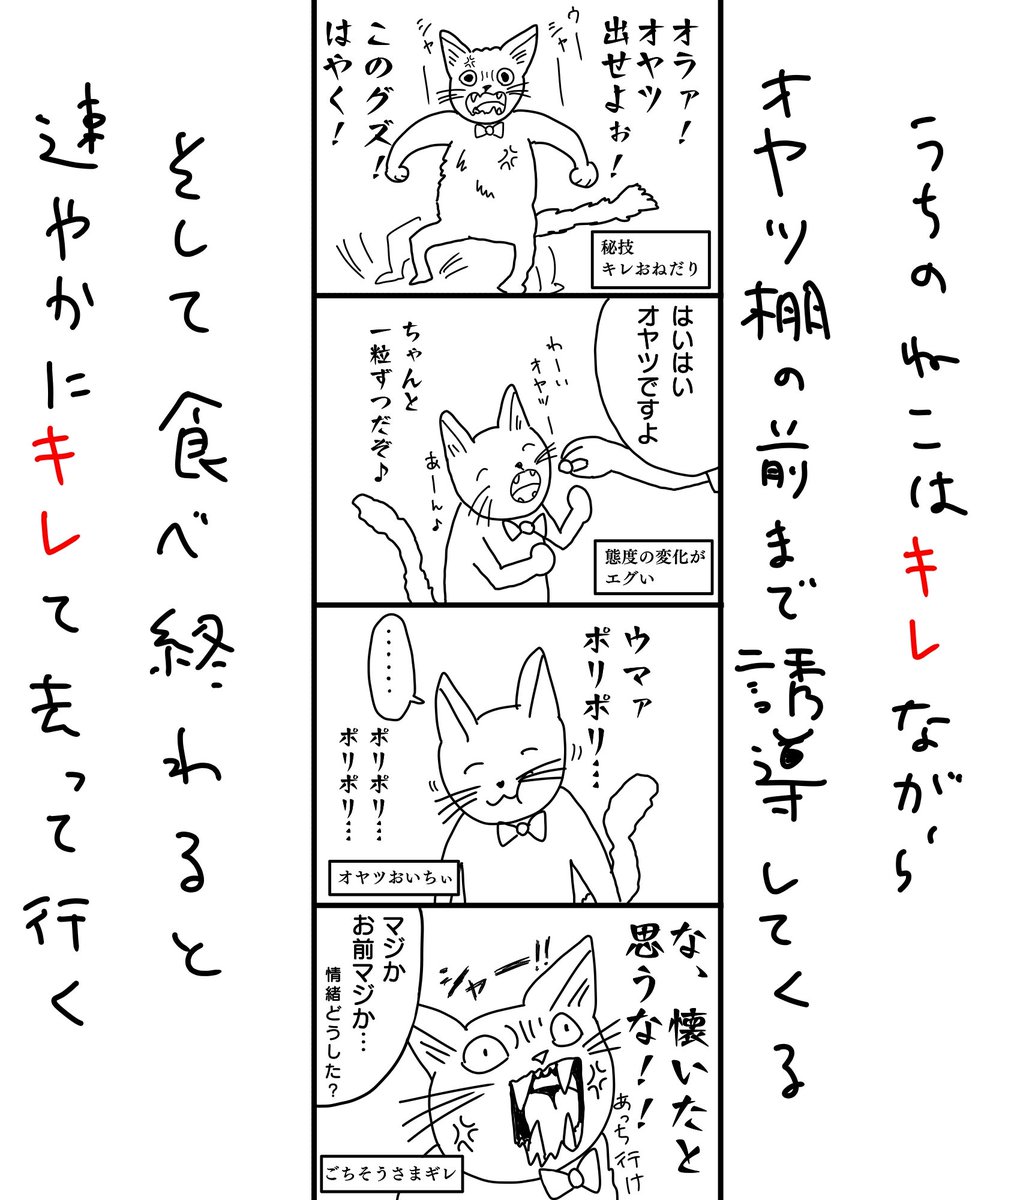 うちのねこはキレながら
オヤツ棚の前まで誘導してくる
オラァ！
オヤツ
出せよぉ！
ウーシャーシャ
このグズ！
はやく！
秘技
キレおねだり
はいはい
オヤツですよ
わーい
オヤツー
ちゃんと
一粒ずつだぞ♪
あーん♪
態度の変化が
エグい
ウマァ
ポリポリ…
……
ポリポリ…
ポリポリ…
オヤツおいちぃ
な、懐いたと
思うな！！
シャー!!
あっち行け
マジか
お前マジか…
情緒どうした？
ごちそうさまギレ
そして食べ終わると
速やかにキレて去って行く